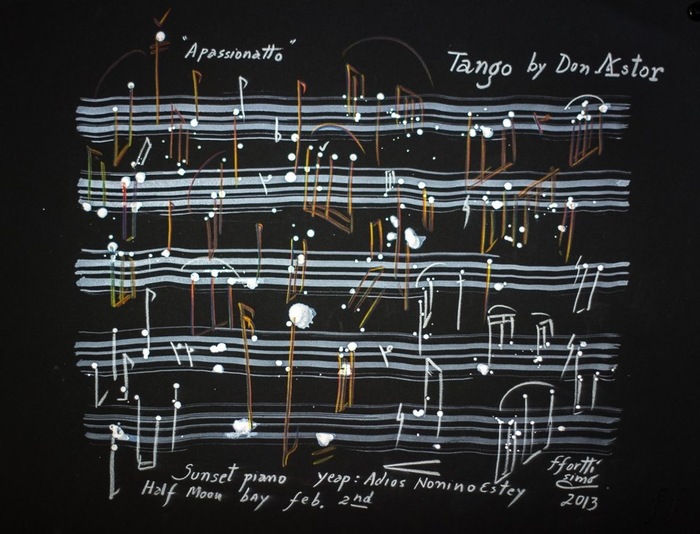 "Apassionatto"
Tango by Don Astor
Sunset piano yeap: Adios NoninoEstey
Half Moon bay feb. 2nd
ffortti
simo
2013